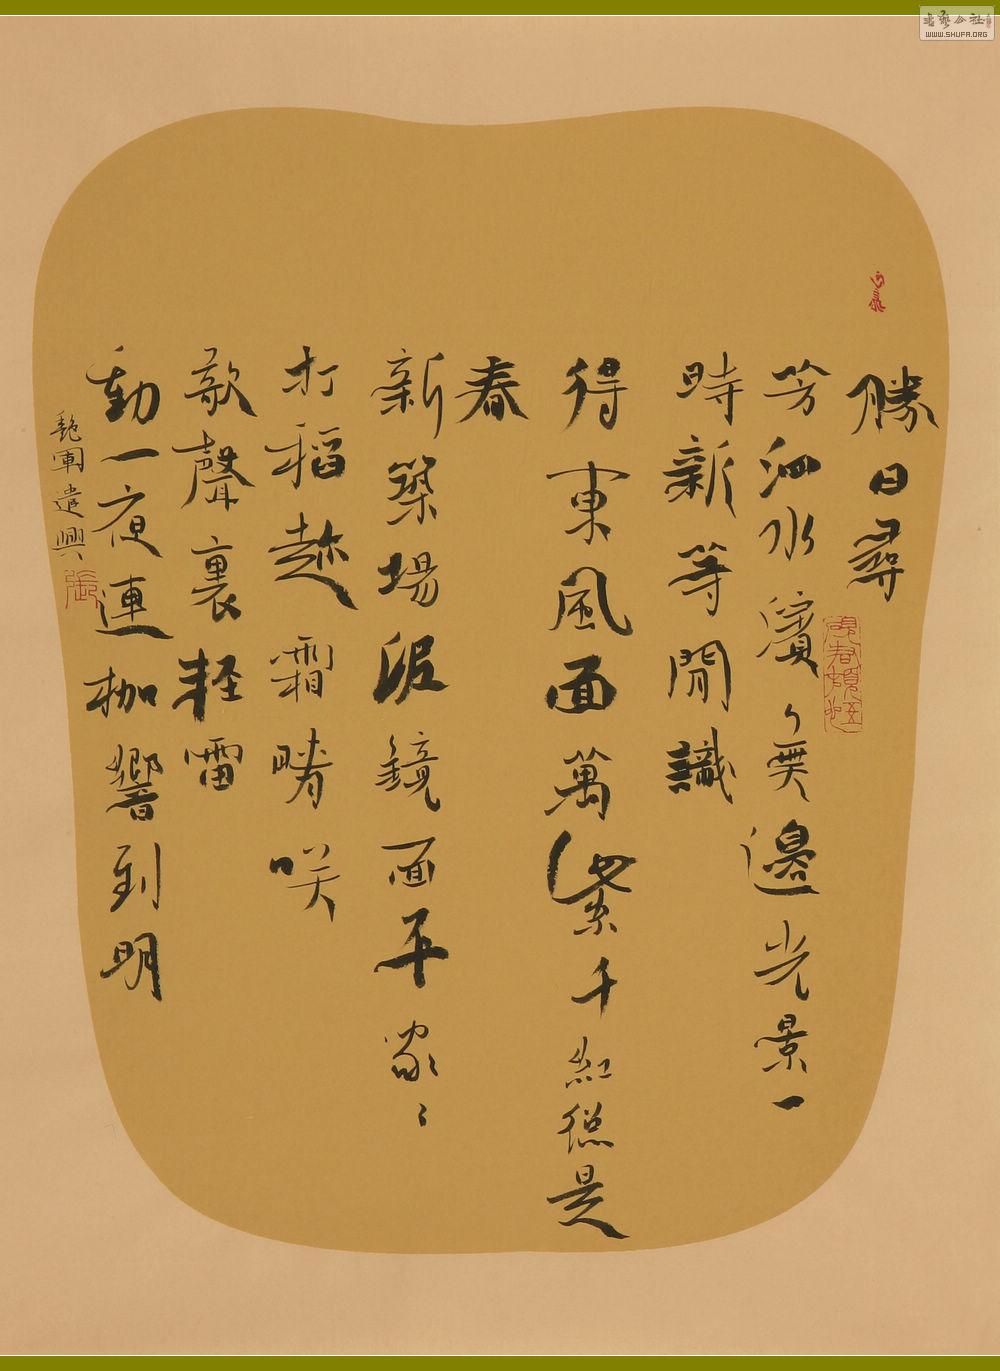 勝日尋
芳泗水濱無邊光景一
時新等閒識
得東風面萬紫千紅總是
春
新築場泥鏡面平家〻
打稻趁霜晴咲
歌聲裏輕雷
動一夜連枷響到明
艷軍遣興
張
書藝公社
WWW.SHUFA.ORG